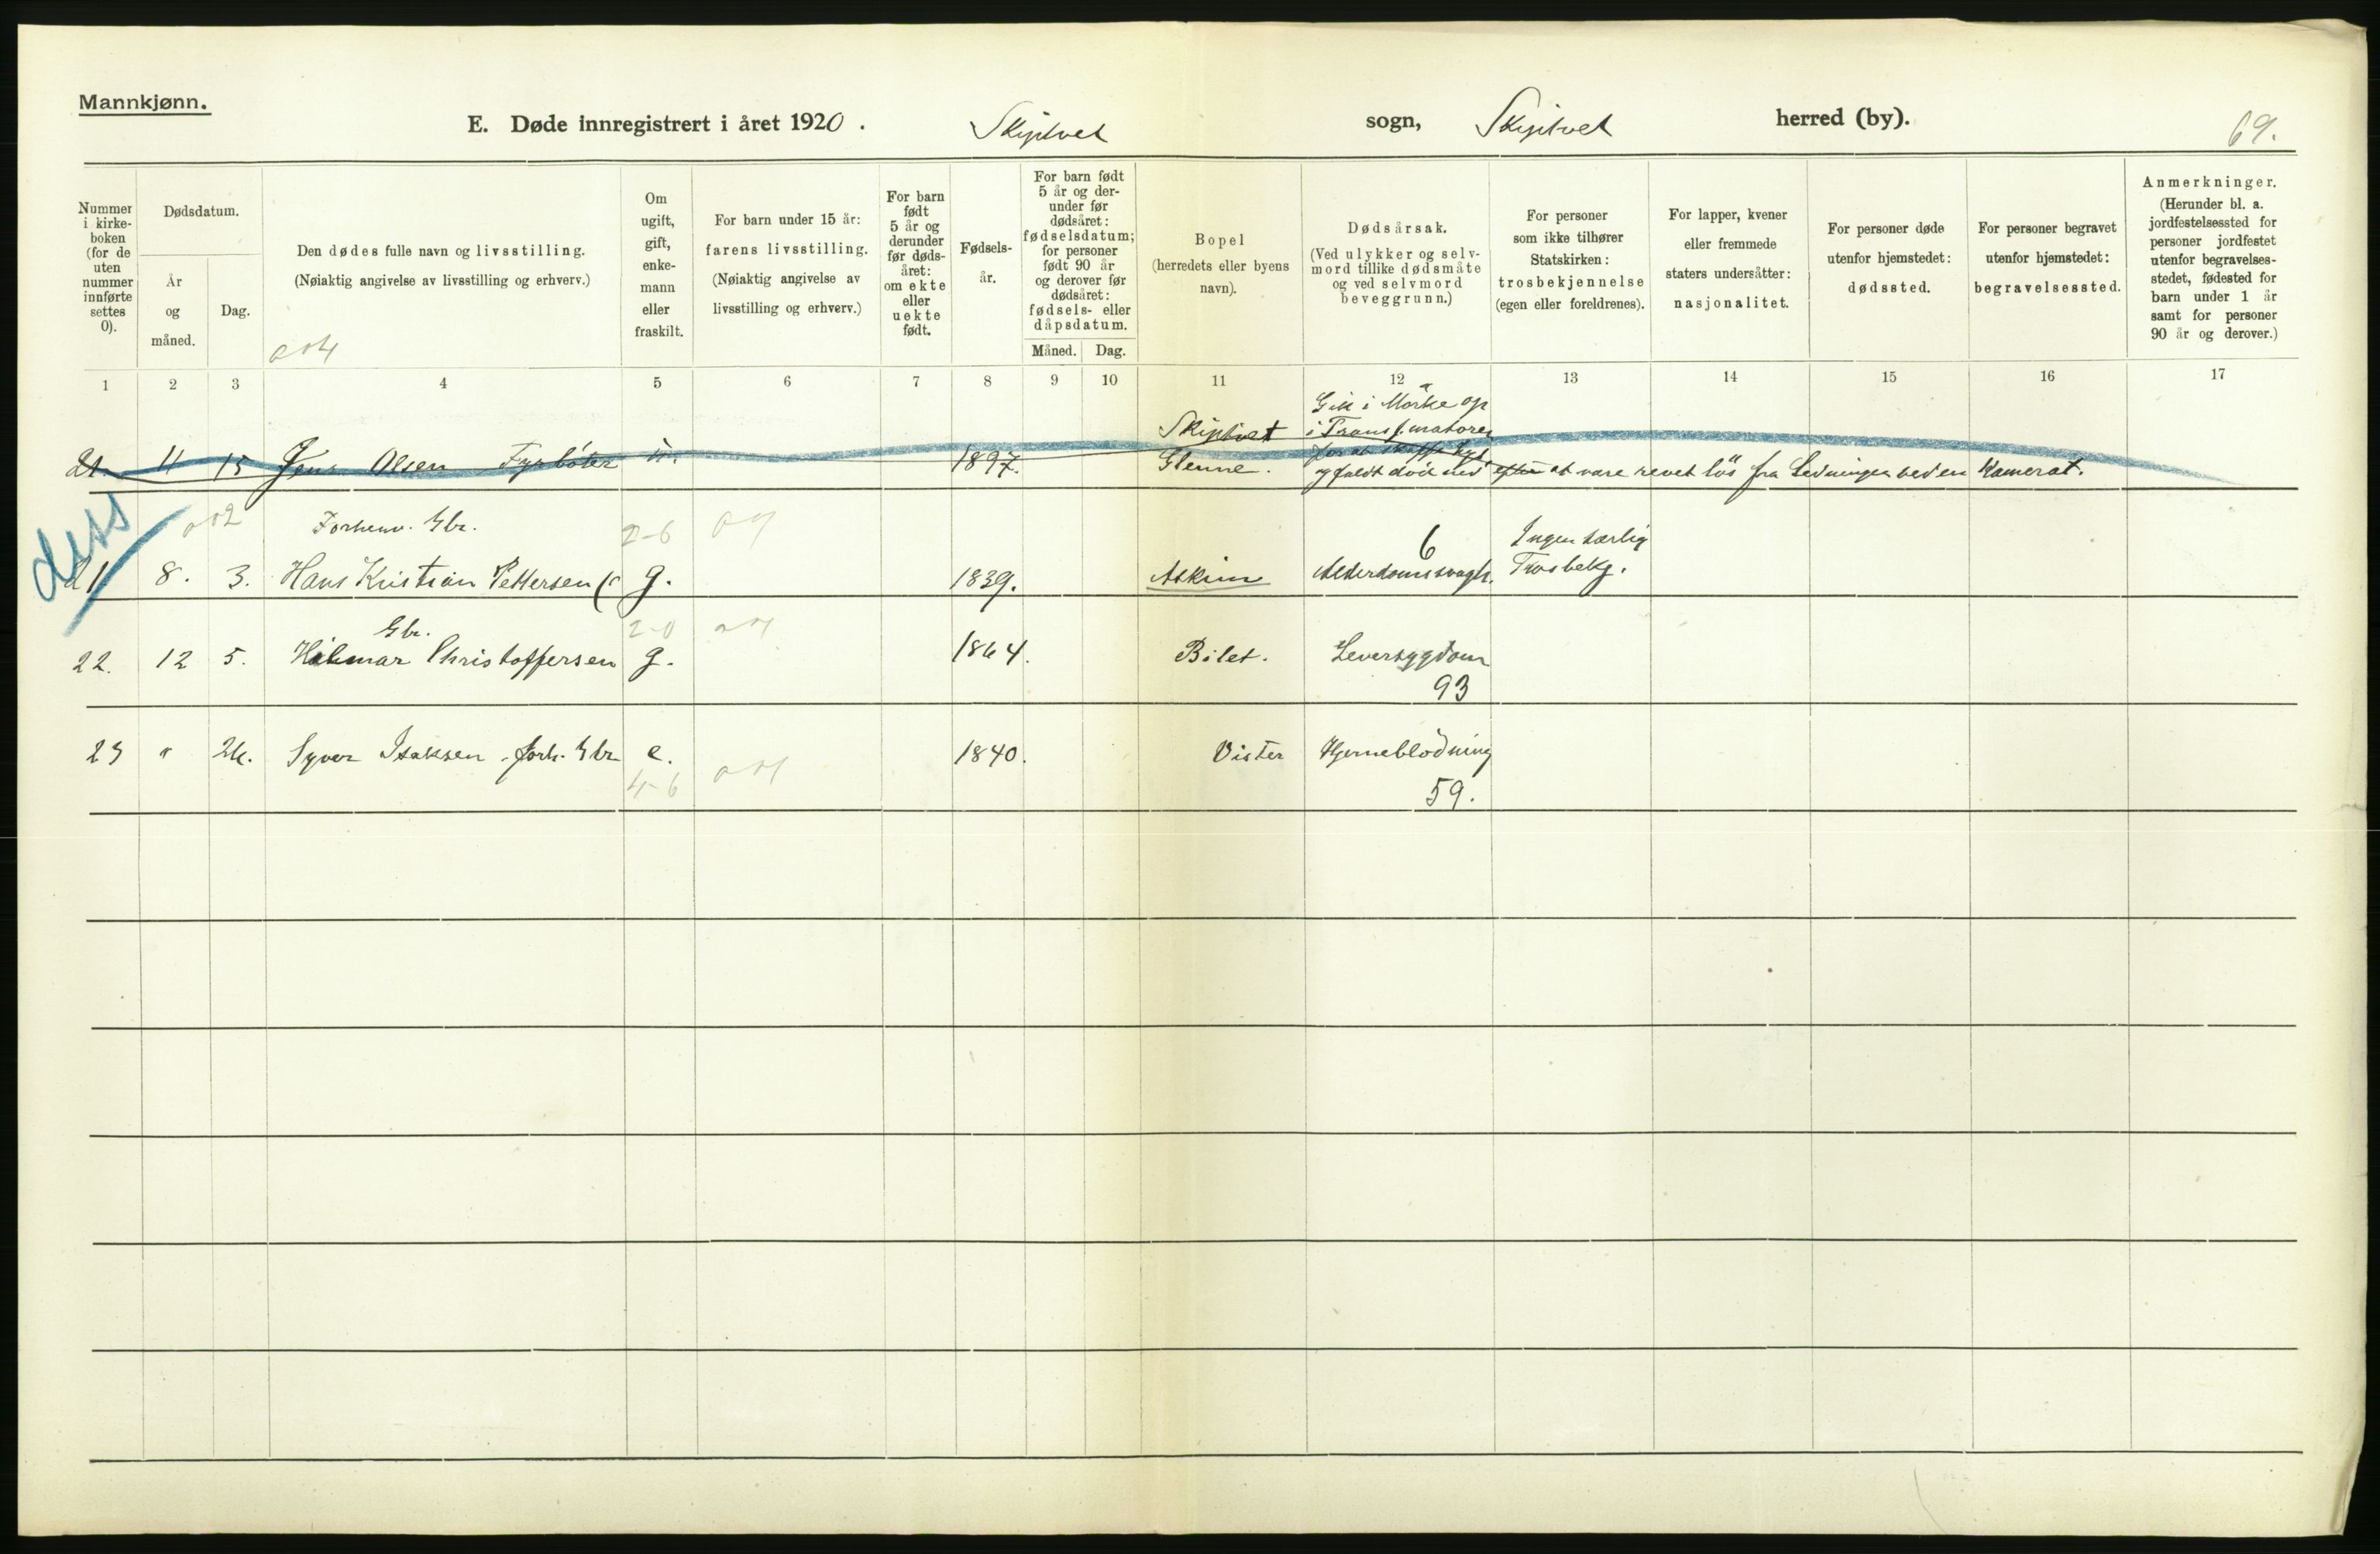 Mannkjønn.
E. Døde innregistrert i året 1920. Skiptvet sogn, Skiptvet herred (by).
69.
Nummer i kirke-boken (for de uten nummer innførte settes 0).
Dødsdatum.
År og måned.
Dag.
Den dødes fulle navn og livsstilling.
(Nøiaktig angivelse av livsstilling og erhverv.)
Om ugift, gift, enke-mann eller fraskilt.
For barn under 15 år:
farens livsstilling.
(Nøiaktig angivelse av livsstilling og erhverv.)
For barn født 5 år og derunder før døds-året: om ekte eller uekte født.
Fødsels-år.
For barn født 5 år og der-under før dødsåret: fødselsdatum; for personer født 90 år og derover før dødsåret: fødsels- eller dåpsdatum.
Måned. Dag.
Bopel
(herredets eller byens navn).
Dødsårsak.
(Ved ulykker og selv-mord tillike dødsmåte og ved selvmord beveggrunn.)
For personer som ikke tilhører Statskirken: trosbekjennelse (egen eller foreldrenes).
For lapper, kvener eller fremmede staters undersåtter: nasjonalitet.
For personer døde utenfor hjemstedet: dødssted.
For personer begravet utenfor hjemstedet: begravelsessted.
Anmerkninger.
(Herunder bl. a. jordfestelsessted for personer jordfestet utenfor begravelses-stedet, fødested for barn under 1 år samt for personer 90 år og derover.)
1 2 3 4 5 6 7 8 9 10 11 12 13 14 15 16 17
21. 11 15 Jens Olsen Fyrbøter u. 1897. Skiptvet Glenne. Gik i Mørke op i Transformatoren for at skaffe Lys og faldt død ned efter at være revet løs fra Ledningen ved en Kamerat.
002 Forhenv. Gbr. 2-6
21 8. 3. Hans Kristian Pettersen g. 1839. Askim Alderdomssvagh. 6 Ingen særlig Trosbekj.
Gbr. 2-0
22. 12 5. Hilmar Christoffersen g. 1864. Bilet. Leversygdom 93
23 " 26. Syver Isaksen forh. Gbr e. 1840. Vister Hjerneblødning 59.
4-6